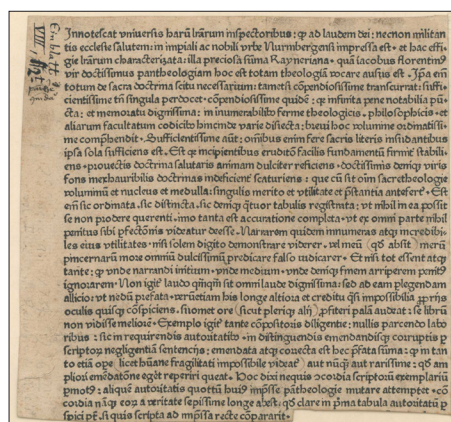 Einblatt
VIII,
Innotescat vniuersis harū lrārum inspectoribus: ꝙ ad laudem dei: necnon militan
tis ecclesie salutem: in impiali ac nobili vrbe Nurmbergensi impressa est · et hac effi-
gie lrārum characterizata: illa preciosa sūma Rayneriana · quā iacobus florentinꝰ
vir doctissimus pantheologiam hoc est totam theologiā vocare ausus est · Ipa em̄
totum de sacra doctrina scitu necessarium: tametsi cōpendiossime transcurrat: suffi-
cientissime tn̄ singula perdocet · cōpendiossime quidē: ꝙ infinita pene notabilia pū
cta: et memoratu dignissima: in inumerabilibꝰ ferme theologicis · philosophicis · et
aliarum facultatum codicibꝰ hincinde varie disiecta: breui hoc volumine ordinatissi-
me comp̄hendit · Sufficientissime aūt: omnibus enim fere sacris literis insudantibus
ipsa sola sufficiens est · Est ꝙ incipientibus erudito facilis fundamentū firme stabili-
ens · prouectis doctrina salutaris animam dulciter reficiens · doctissimis demqꝫ viris
fons inexhauribilis doctrinas indeficienter scaturiens: que cū sit oīm sacrotheologie
voluminū et nucleus et medulla: singulis merito et vtilitate et p̄stantia antefert · Est
em̄ sic ordinata · sic distincta · sic demqꝫ q̄tuor tabulis registrata: vt nihil in ea possit
se non prodere querenti · imo tanta est accuratione completa · vt ex omni parte nihil
penitus sibi ꝓfectōnis videatur deesse · Narrarem quidem innumeras atqꝫ incredibi-
les eius vtilitates · nisi solem digito demonstrare viderer · vel meū (qd̄ absit) merū
pincernarū more omniū dulcissimū predicare falso iudicarer · Et nisi tot essent atqꝫ
tante: ꝙ vnde narrandi initium · vnde medium · vnde demqꝫ finem arriperem penitꝰ
ignorarem · Non igit̄ laudo qm̄qm̄ sit omni laude dignissima: sed ad eam plegendam
allicio: vt nedū prefata · verūetiam his longe altiora et creditu q̄si impossibilia ꝓprijs
oculis quisqꝫ cōspiciens · suomet ore (sicut pleriqꝫ alij) ꝓfiteri palā audeat: se librū
non vidisse meliorē · Exemplo igit̄ tante cōpositoris diligentie: nullis parcendo labo
ribus: sic in requirendis autoritatibꝰ · in distinguendis emendandisqꝫ coruptis p
scriptoꝝ negligentiā sentencijs: emendata atqꝫ couecta est hec p̄fata sūma: ꝙ in tan
to etiā ope (licet humane fragilitati impossibile videat̄) aut nūqꝫ aut rarissime: qd̄ am
pliori emēdatōne egꝫt reperiri queat · Hoc dixi nequis ꝯcordia scriptoꝝ exemplariū
ꝑmotꝰ: aliquē autoritatis quottū huiꝰ impsse pātheologie mutare attemptet · cō
cordia nāqꝫ eoꝝ a veritate sepissime longe abest: qd̄ clare in p̄ma tabula autoritatū ꝑ
spici pt̄ · si quis scripta ad impssa recte compararit ·